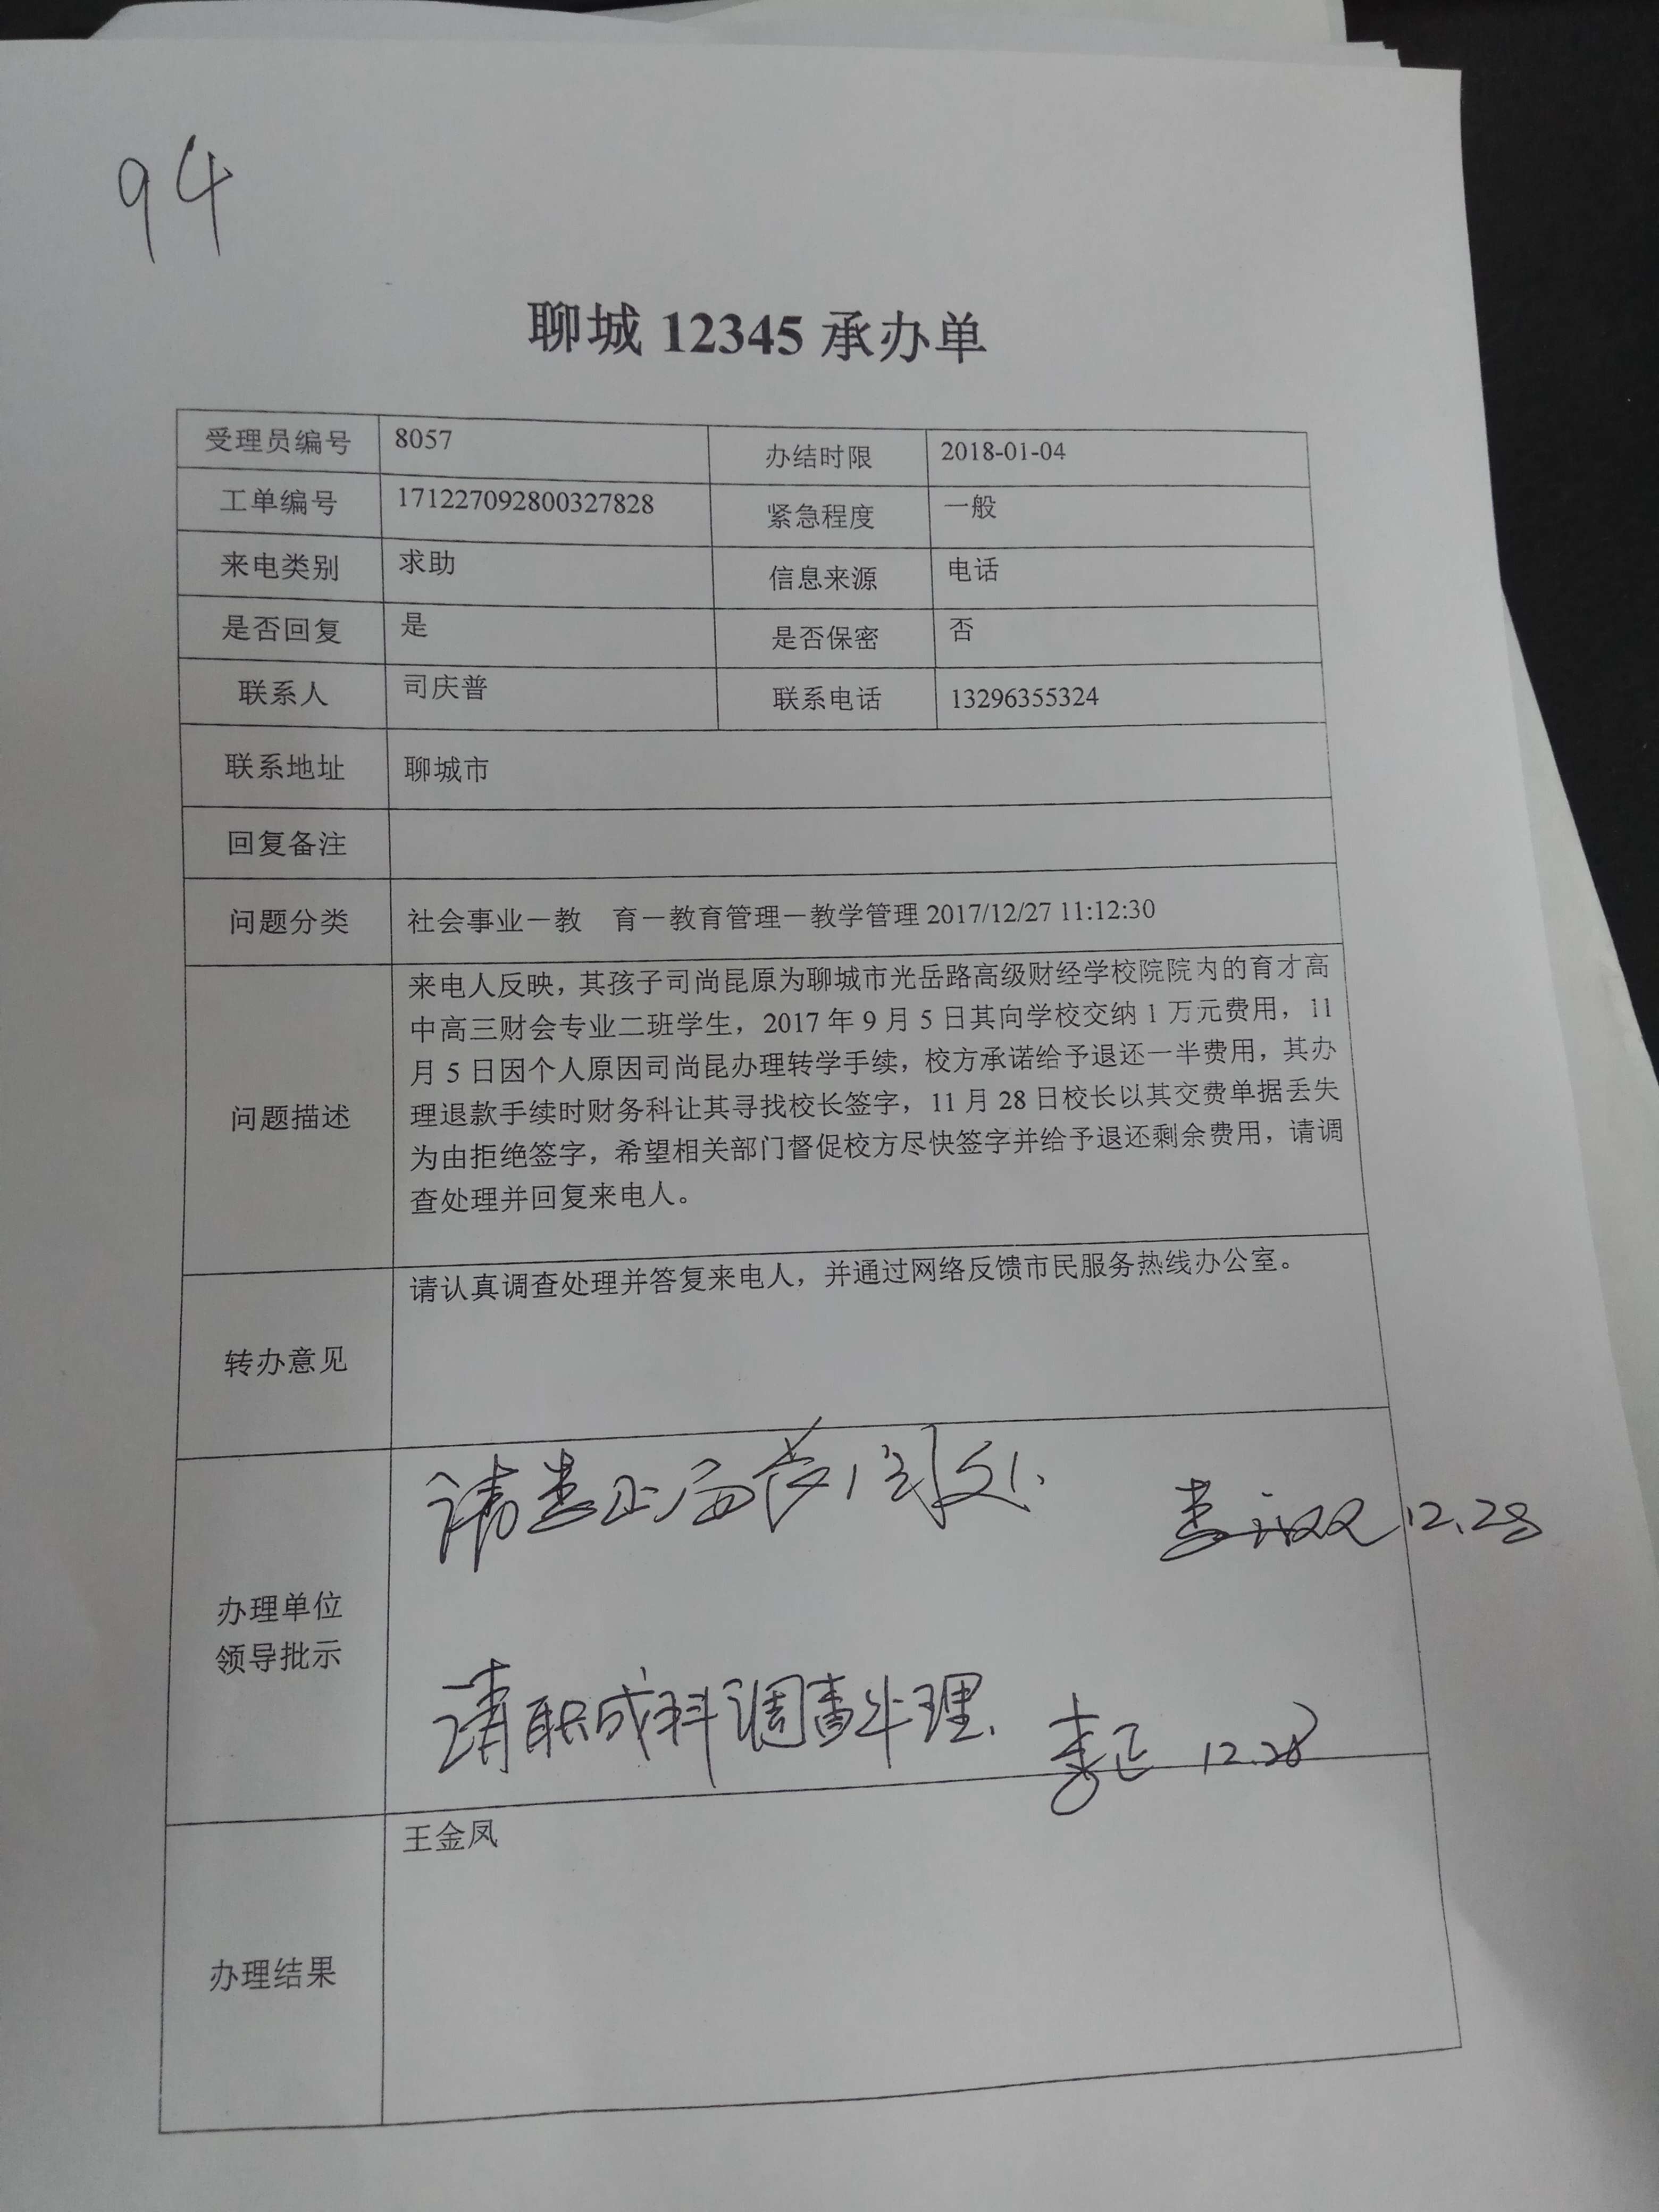 94
聊城 12345 承办单
受理员编号 8057 办结时限 2018-01-04
工单编号 171227092800327828 紧急程度 一般
来电类别 求助 信息来源 电话
是否回复 是 是否保密 否
联系人 司庆普 联系电话 13296355324
联系地址 聊城市
回复备注
问题分类 社会事业－教　育－教育管理－教学管理 2017/12/27 11:12:30
问题描述
来电人反映，其孩子司尚昆原为聊城市光岳路高级财经学校院院内的育才高
中高三财会专业二班学生，2017 年 9 月 5 日其向学校交纳 1 万元费用，11
月 5 日因个人原因司尚昆办理转学手续，校方承诺给予退还一半费用，其办
理退款手续时财务科让其寻找校长签字，11 月 28 日校长以其交费单据丢失
为由拒绝签字，希望相关部门督促校方尽快签字并给予退还剩余费用，请调
查处理并回复来电人。
转办意见
请认真调查处理并答复来电人，并通过网络反馈市民服务热线办公室。
办理单位
领导批示
请
12.28
请职成科调查处理.
李正 12.28
办理结果
王金凤